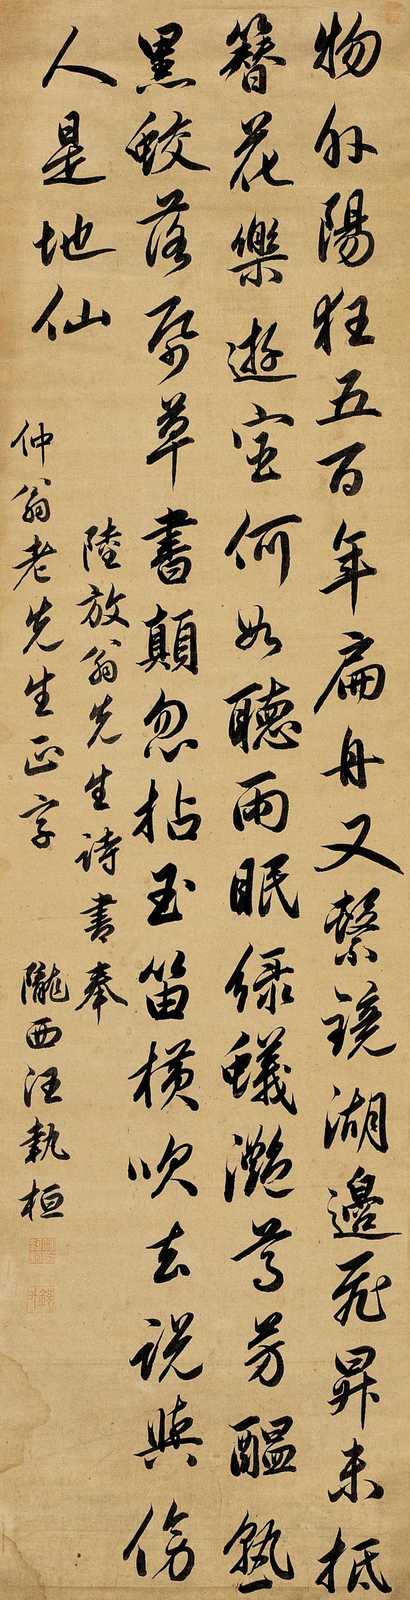 物外陽狂五百年扁舟又繫鏡湖邊飛昇未抵
簪花樂遊宦何如聽雨眠綠蟻灩尊芳醞熟
黑蛟落帋草書顛忽拈玉笛橫吹去說與傍
人是地仙
陸放翁先生詩書奉
仲翁老先生正字 隴西汪執桓